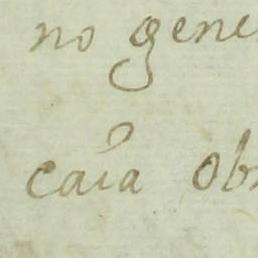 no gene
caia ob